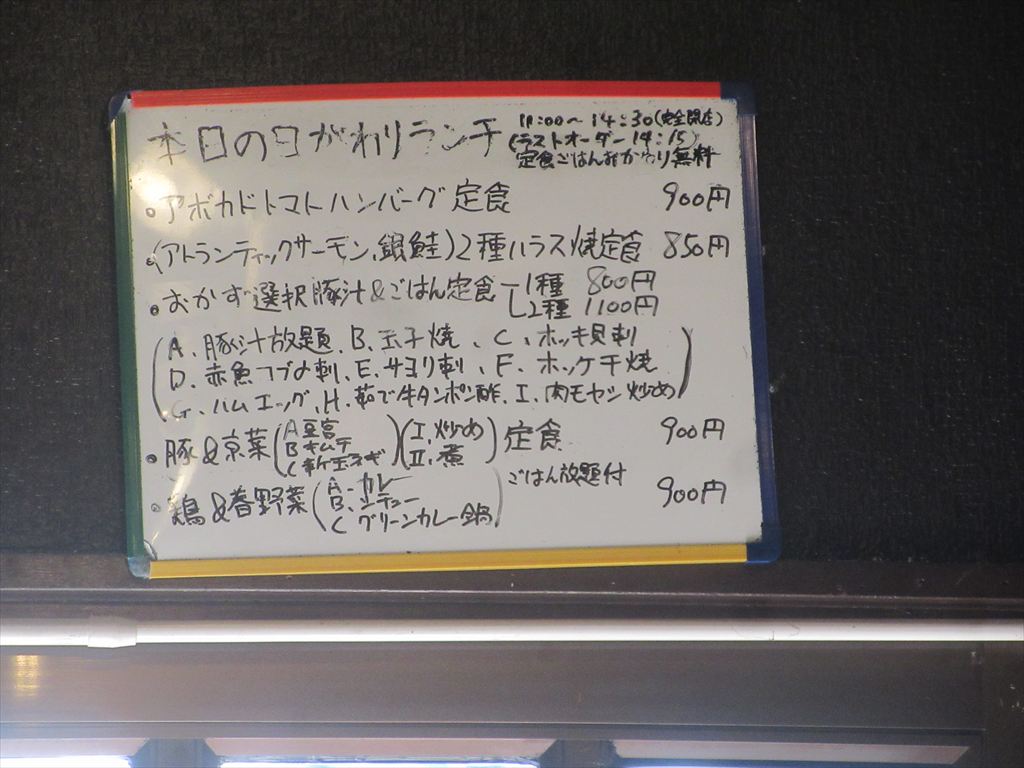 本日の日がわりランチ
11:00～14:30(完全閉店)
(ラストオーダー14:15)
定食ごはんおかわり無料
・アボカドトマトハンバーグ定食 900円
・(アトランティックサーモン、銀鮭)2種ハラス焼定食 850円
・おかず選択豚汁&ごはん定食 1種 800円
2種 1100円
(A、豚汁放題、B、玉子焼、C、ホッキ貝刺
D、赤魚コブ〆刺、E、サヨリ刺、F、ホッケ干焼
G、ハムエッグ、H、茹で牛タンポン酢、I、肉モヤシ炒め)
・豚&京菜(A豆富 Bキムチ C新玉ネギ)(I、炒め II、煮)定食 900円
・鶏&春野菜(A、カレー B、シチュー C グリーンカレー鍋) ごはん放題付 900円